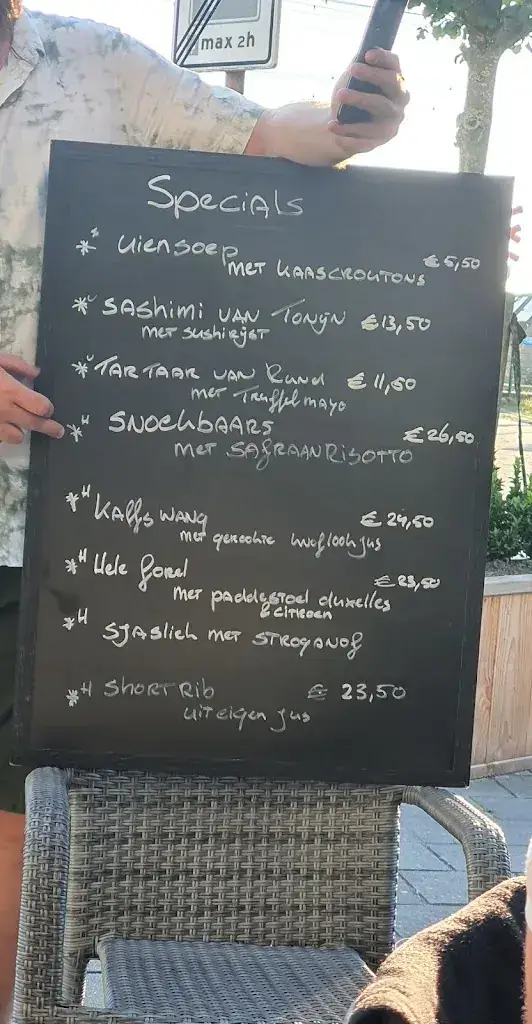 max 2h
Specials
* uiensoep
met kaascroutons €5,50
* Sashimi van Tonijn €13,50
met sushirijst
* Tartaar van Rund €11,50
met Truffel mayo
*H Snoekbaars €26,50
met safraanrisotto
*H Kalfswang €24,50
met gerookte knoflook jus
*H Hele forel €23,50
met paddestoel duxelles
& citroen
*H Sjaslick met stroganof
*H Short Rib € 23,50
uit eigen jus